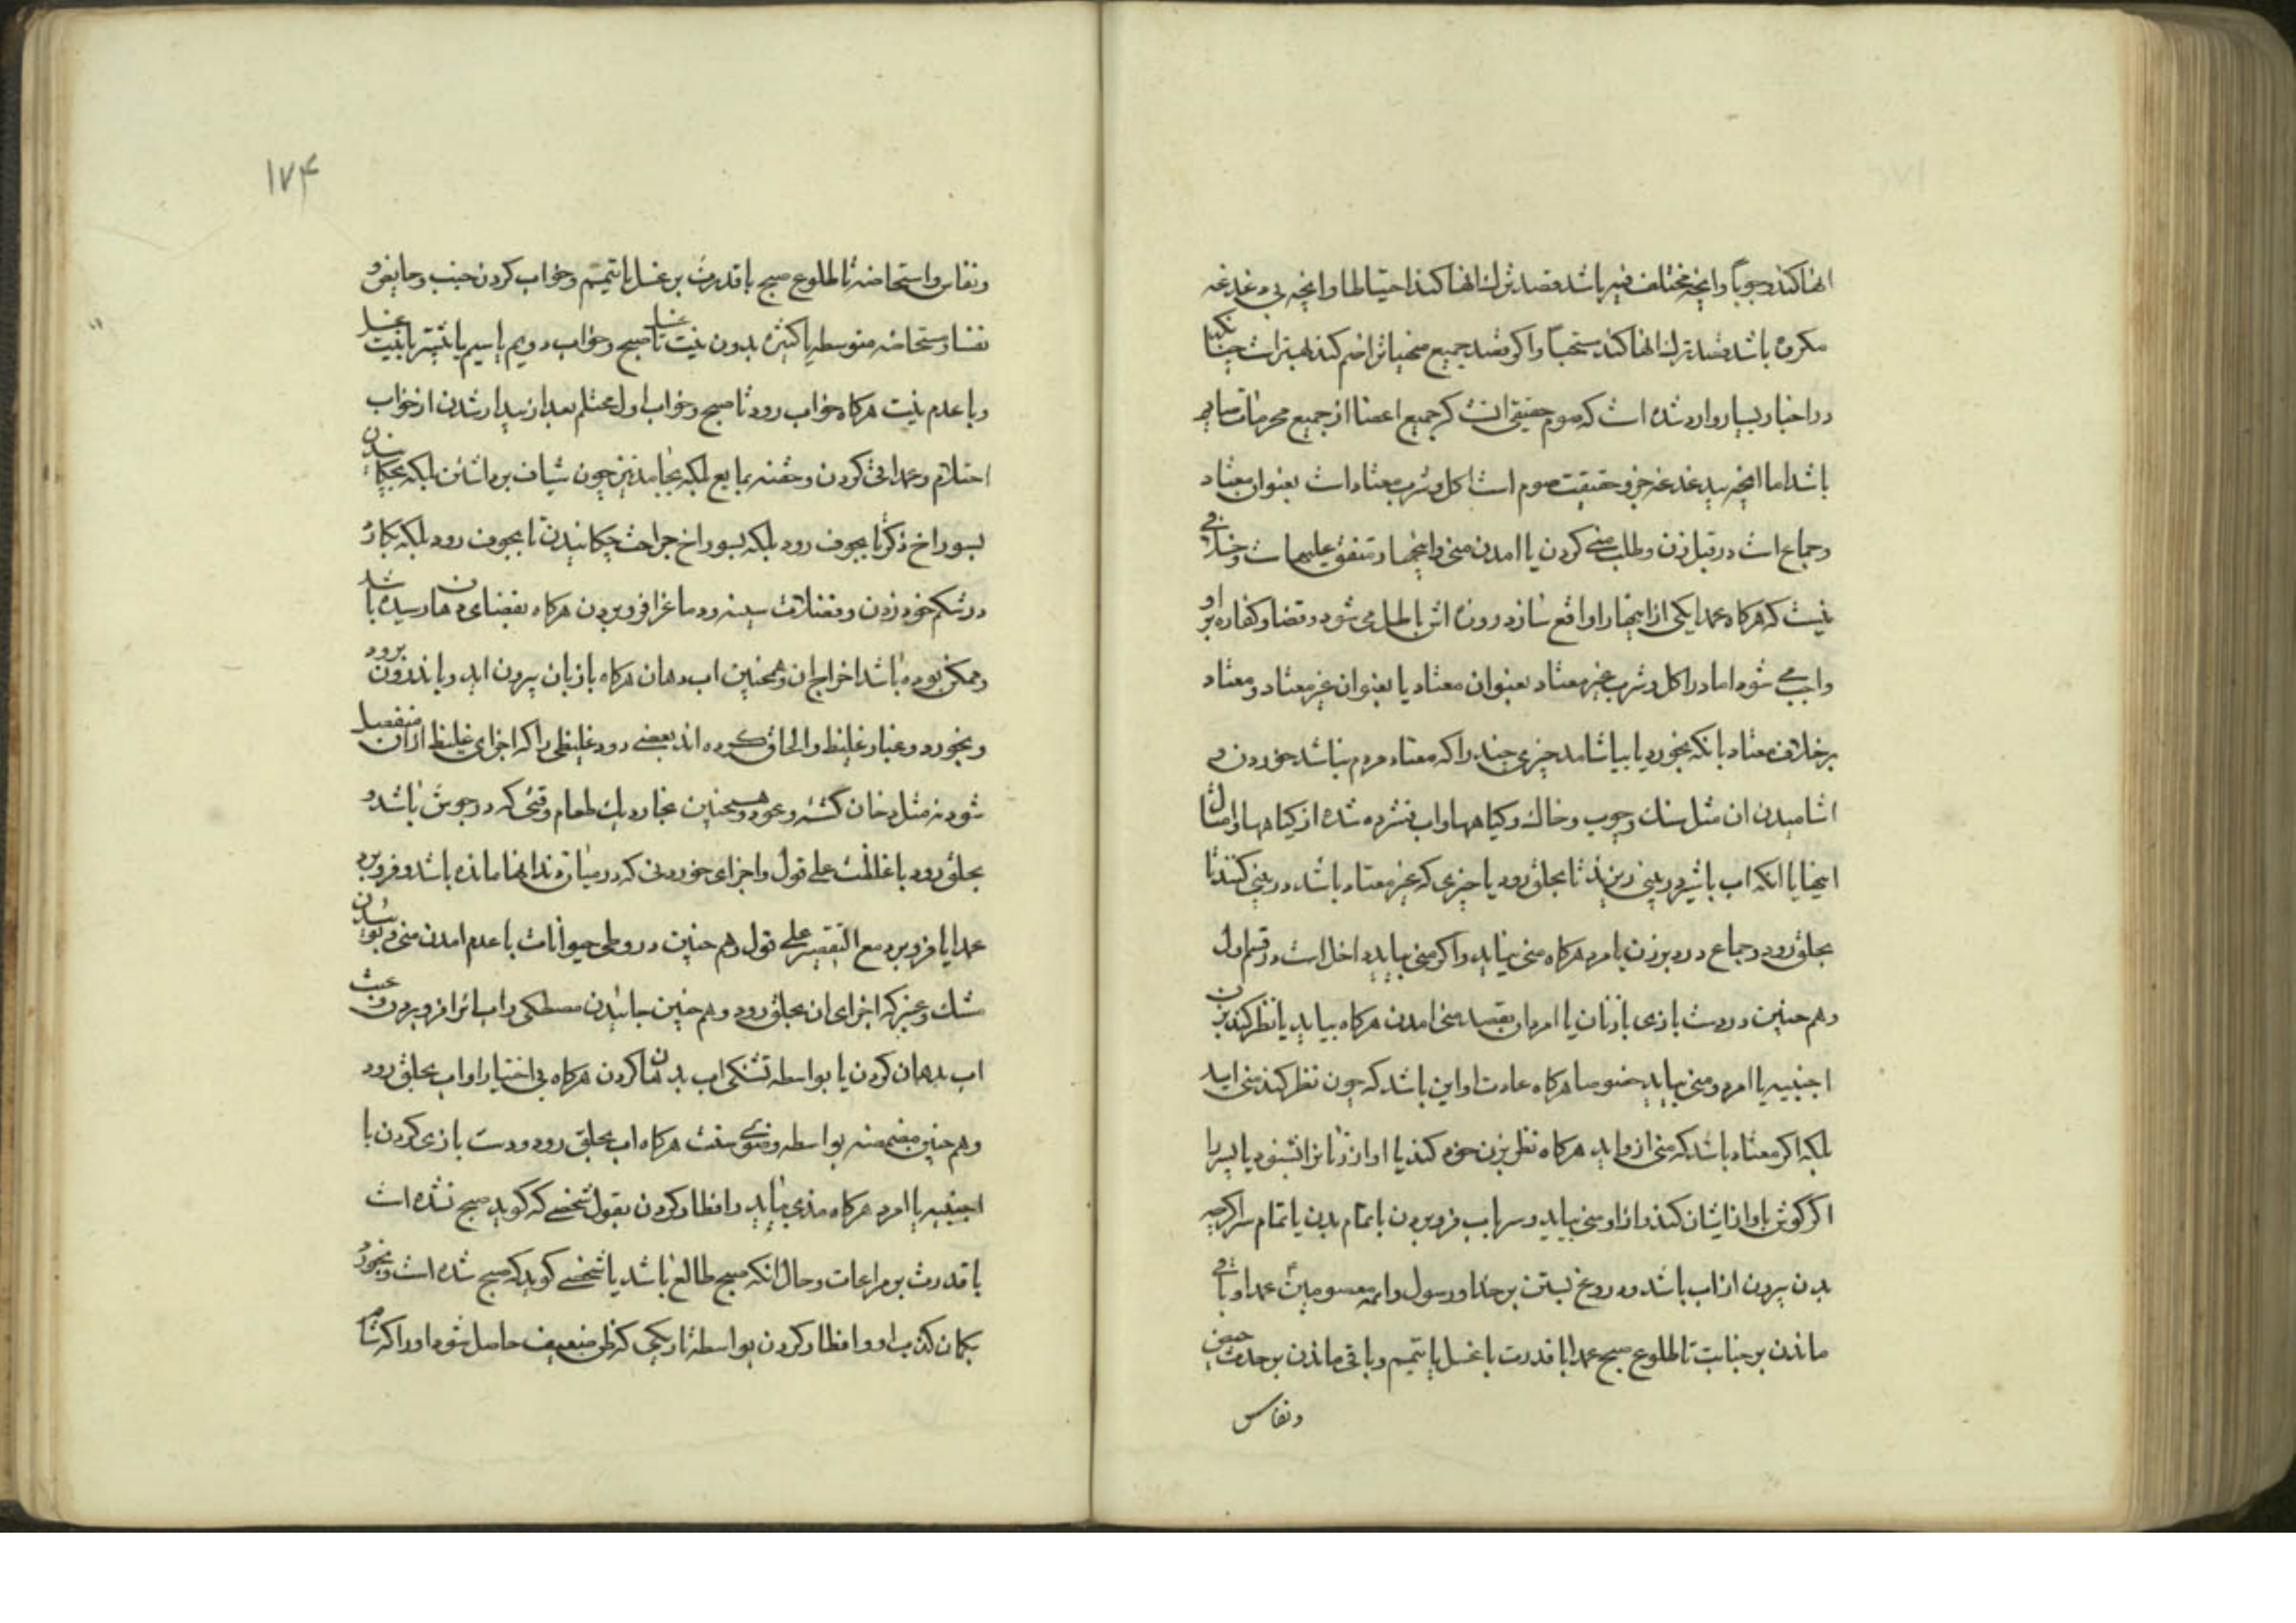 انها کند وجوباً وانچه مختلف فیه باشد قصد ترک انها کند احتیاطا وانچه بی دغدغه
مکروه باشد قصد ترک انها کند ستحباً واکر قصد جمیع منهیاتراضم کند بهتر است چنانکه
در اخبار بسیار وارد شده است که صوم حقیقی انست که جمیع اعضا از جمیع محرمات صایم
باشد اما انچه بیدغدغه جزو حقیقت صوم است اکل و شرب معتاد است بعنوان معتاد
و جماع است در قبل زن و طلب منی کردن یا امدن منی و اینها متفق علیهاست و خلافی
نیست که هرکاه عمدا یکی از اینها را واقع سازد روزه اش باطل می شود و قضا و کفاره بر او
واجب می شود اما در اکل و شرب غیر معتاد بعنوان معتاد یا بعنوان غیر معتاد و معتاد
بر خلاف معتاد بانکه بخورد یا بیاشامد چیزی چند را که معتاد مردم نباشد خوردن و
اشامیدن ان مثل سنک و چوب و خاک و کیاهها و اب فشرده شده از کیاهها و امثال
اینها یا انکه اب یا شیر در بینی ریزند تا بحلق رود یا چیزی که غیر معتاد باشد در بینی کنند تا
بحلق رود و جماع در دبر زن یا مرد هرکاه منی نیاید واکر منی بیاید داخل است در قسم اول
و هم چنین در دست بازی با زنان یا امردان بقصد منی امدن هرکاه بیاید یا نظر کند بزن
اجنبیه یا امرد و منی بیاید خصوصا هرکاه عادت او این باشد که چون نظر کند منی اید
بلکه اکر معتاد باشد که منی از او اید هرکاه نظر بزن خود کند یا اواز زنانرا بشنود یا پسر را
اکر کوش باواز ایشان کند و از او منی بیاید و سر باب فرو بردن با تمام بدن یا تمام سر اکرچه
بدن بیرون از اب باشد و دروغ بستن بر خدا و رسول و ائمه معصومین عمدا و باقی
ماندن بر جنابت تا طلوع صبح عمدا با قدرت با غسل یا تیمم و باقی ماندن بر حدث حیض
و نفاس
۱۷۴
و نفاس و استحاضه تا طلوع صبح با قدرت بر غسل یا تیمم و خواب کردن جنب و حایض و
نفسا و مستحاضه متوسطه یا کثیره بدون نیت غسل تا صبح و خواب دویم یا سیم یا بیشتر با نیت غسل
و با عدم نیت هرکاه خواب رود تا صبح و خواب اول محتلم بعد از بیدار شدن از خواب
احتلام و عمدا قی کردن و حقنه بمایع بلکه بجامد نیز چون شیاف برداشتن بلکه بچکانیدن
بسوراخ ذکر تا بجوف رود بلکه بسوراخ جراحت چکانیدن تا بجوف رود بلکه کارد
در شکم خود زدن و فضلات سینه و دماغ را فرو بردن هرکاه بفضای دهان رسیده باشد
و ممکن بوده باشد اخراج ان و همچنین اب دهان هرکاه با زبان بیرون اید و باندرون برود
و بخورد و غبار غلیظ و الحاق کرده اند بعضی دود غلیظی را که اجزای غلیظ از ان منفصل
شود نه مثل دخان کشنه و عود و همچنین بخار دیک طعام وقتی که در جوش باشد و
بحلق رود با غلظت علی قول و اجزای خوردنی که در میان دندانها مانده باشد و فرو برد
عمدا یا فرو برد مع التقصیر علی قول و هم چنین در وطی حیوانات با عدم امدن منی و
مشک و عنبر که اجزای ان بحلق رود و هم چنین جائیدن مصطکی و اب انرا فرو بردن و عبث
اب بدهان کردن یا بواسطه تشنکی اب بدهان کردن هرکاه بی اختیار او اب بحلق رود
و هم چنین مضمضه بواسطه وضوی سنت هرکاه اب بحلق رود و دست بازی کردن با
اجنبیه یا امرد هرکاه مذی بیاید و افطار کردن بقول شخصی که کوید صبح نشده است
با قدرت بر مراعات و حال انکه صبح طالع باشد یا شخصی کوید که صبح شده است و بخورد
بکمان کذب او و افطار کردن بواسطه تاریکی که ظن ضعیف حاصل شود او را که شام